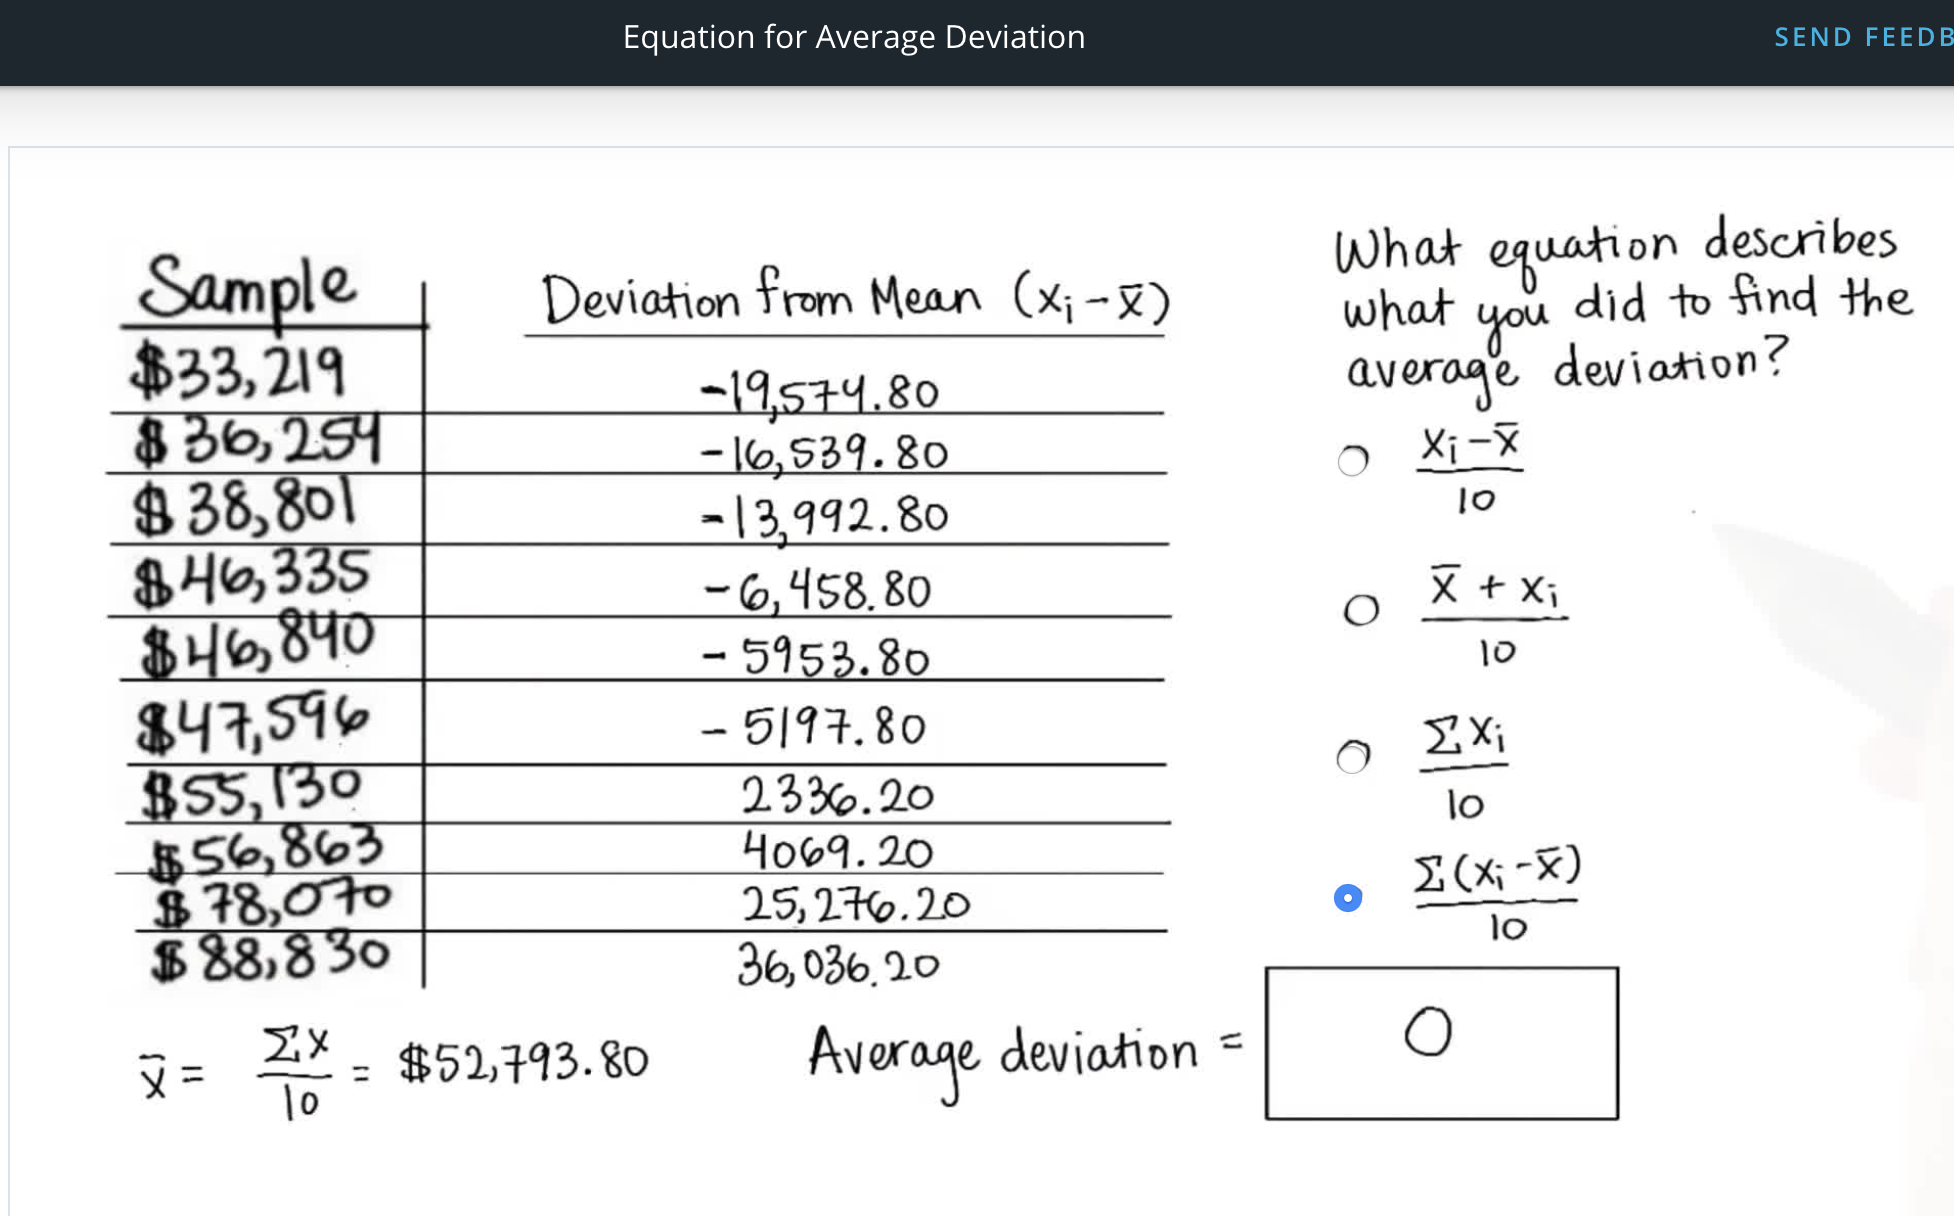 Equation for Average Deviation
SEND FEEDB
Sample
Deviation from Mean (xᵢ - x̄)
$33,219 -19,574.80
$36,254 -16,539.80
$38,801 -13,992.80
$46,335 -6,458.80
$46,840 -5953.80
$47,596 -5197.80
$55,130 2336.20
$56,863 4069.20
$78,070 25,276.20
$88,830 36,036.20
x̄ = Σx / 10 = $52,793.80
Average deviation = 0
What equation describes
what you did to find the
average deviation?
xᵢ - x̄
10
x̄ + xᵢ
10
Σxᵢ
10
Σ(xᵢ - x̄)
10